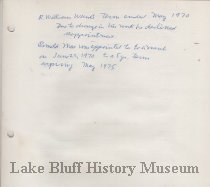 R. William Ward Term ended May 1970
Due to change in his work he declined
reappointment.
Donald was appointed to Board
on June 23, 1970 to a 5 yr. term
expiring May 1975
Lake Bluff History Museum